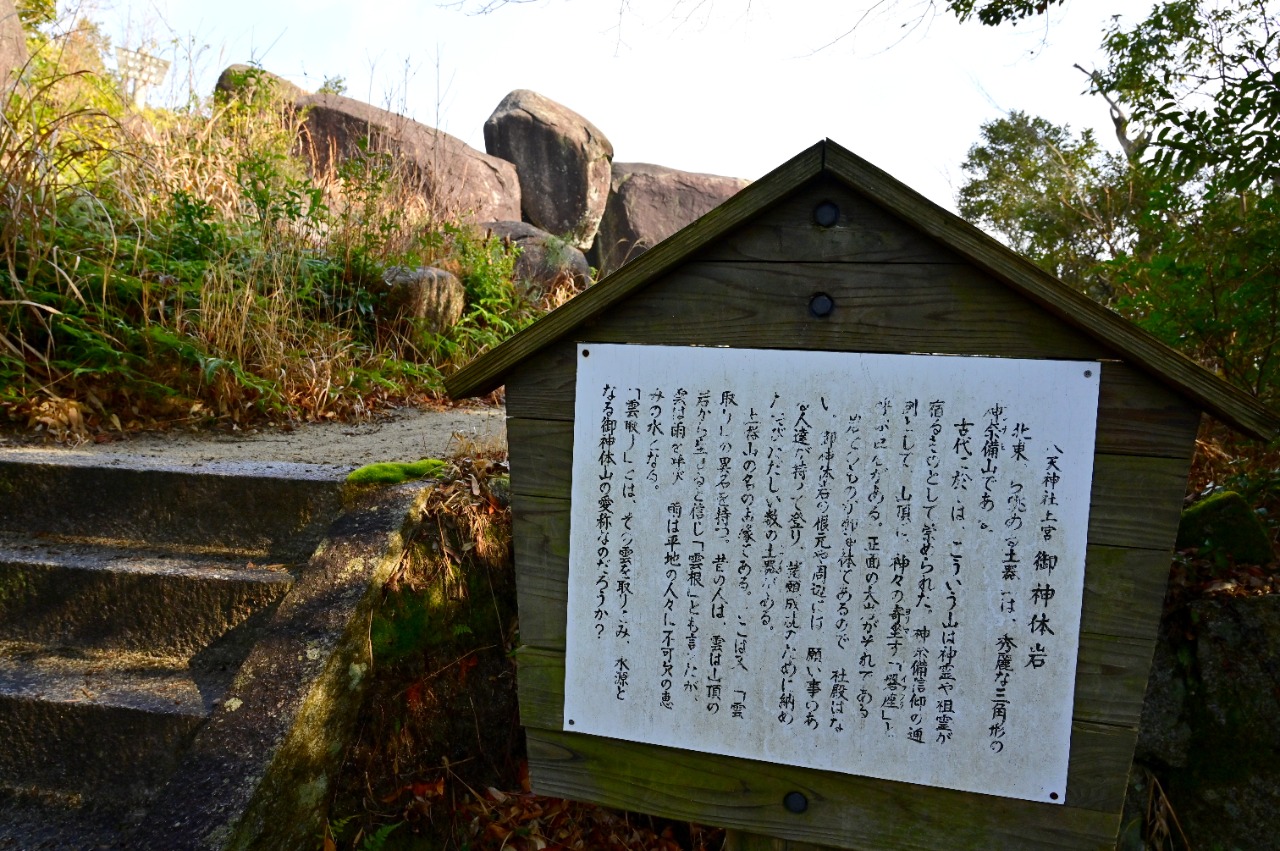 八天神社上宮 御神体岩
北東 眺める土器 は、秀麗な三角形の
神奈備山である
古代 於 は、こういう山は神霊や祖霊が
宿る として崇められた。神奈備信仰の通
例として 山頂に 神々の寄坐す「磐座」と
呼 ばれ ある。正面の大 がそれである
御神体であるので 社殿はな
い。御神体岩の根元や周辺には 願い事のあ
る人達が持って登り、 願成就のために納め
た 数の土器がある。
土器山の名の由縁である。 又 「雲
取り」の異名を持つ。昔の人は 雲は山頂の
岩から生ま ると信じ「雲根」とも言ったが、
雲は雨を呼び 雨は平地の人々に不可欠の恵
みの水となる。
「雲取り」とは、その雲を取りこみ 水源と
なる御神体山の愛称なのだろうか?